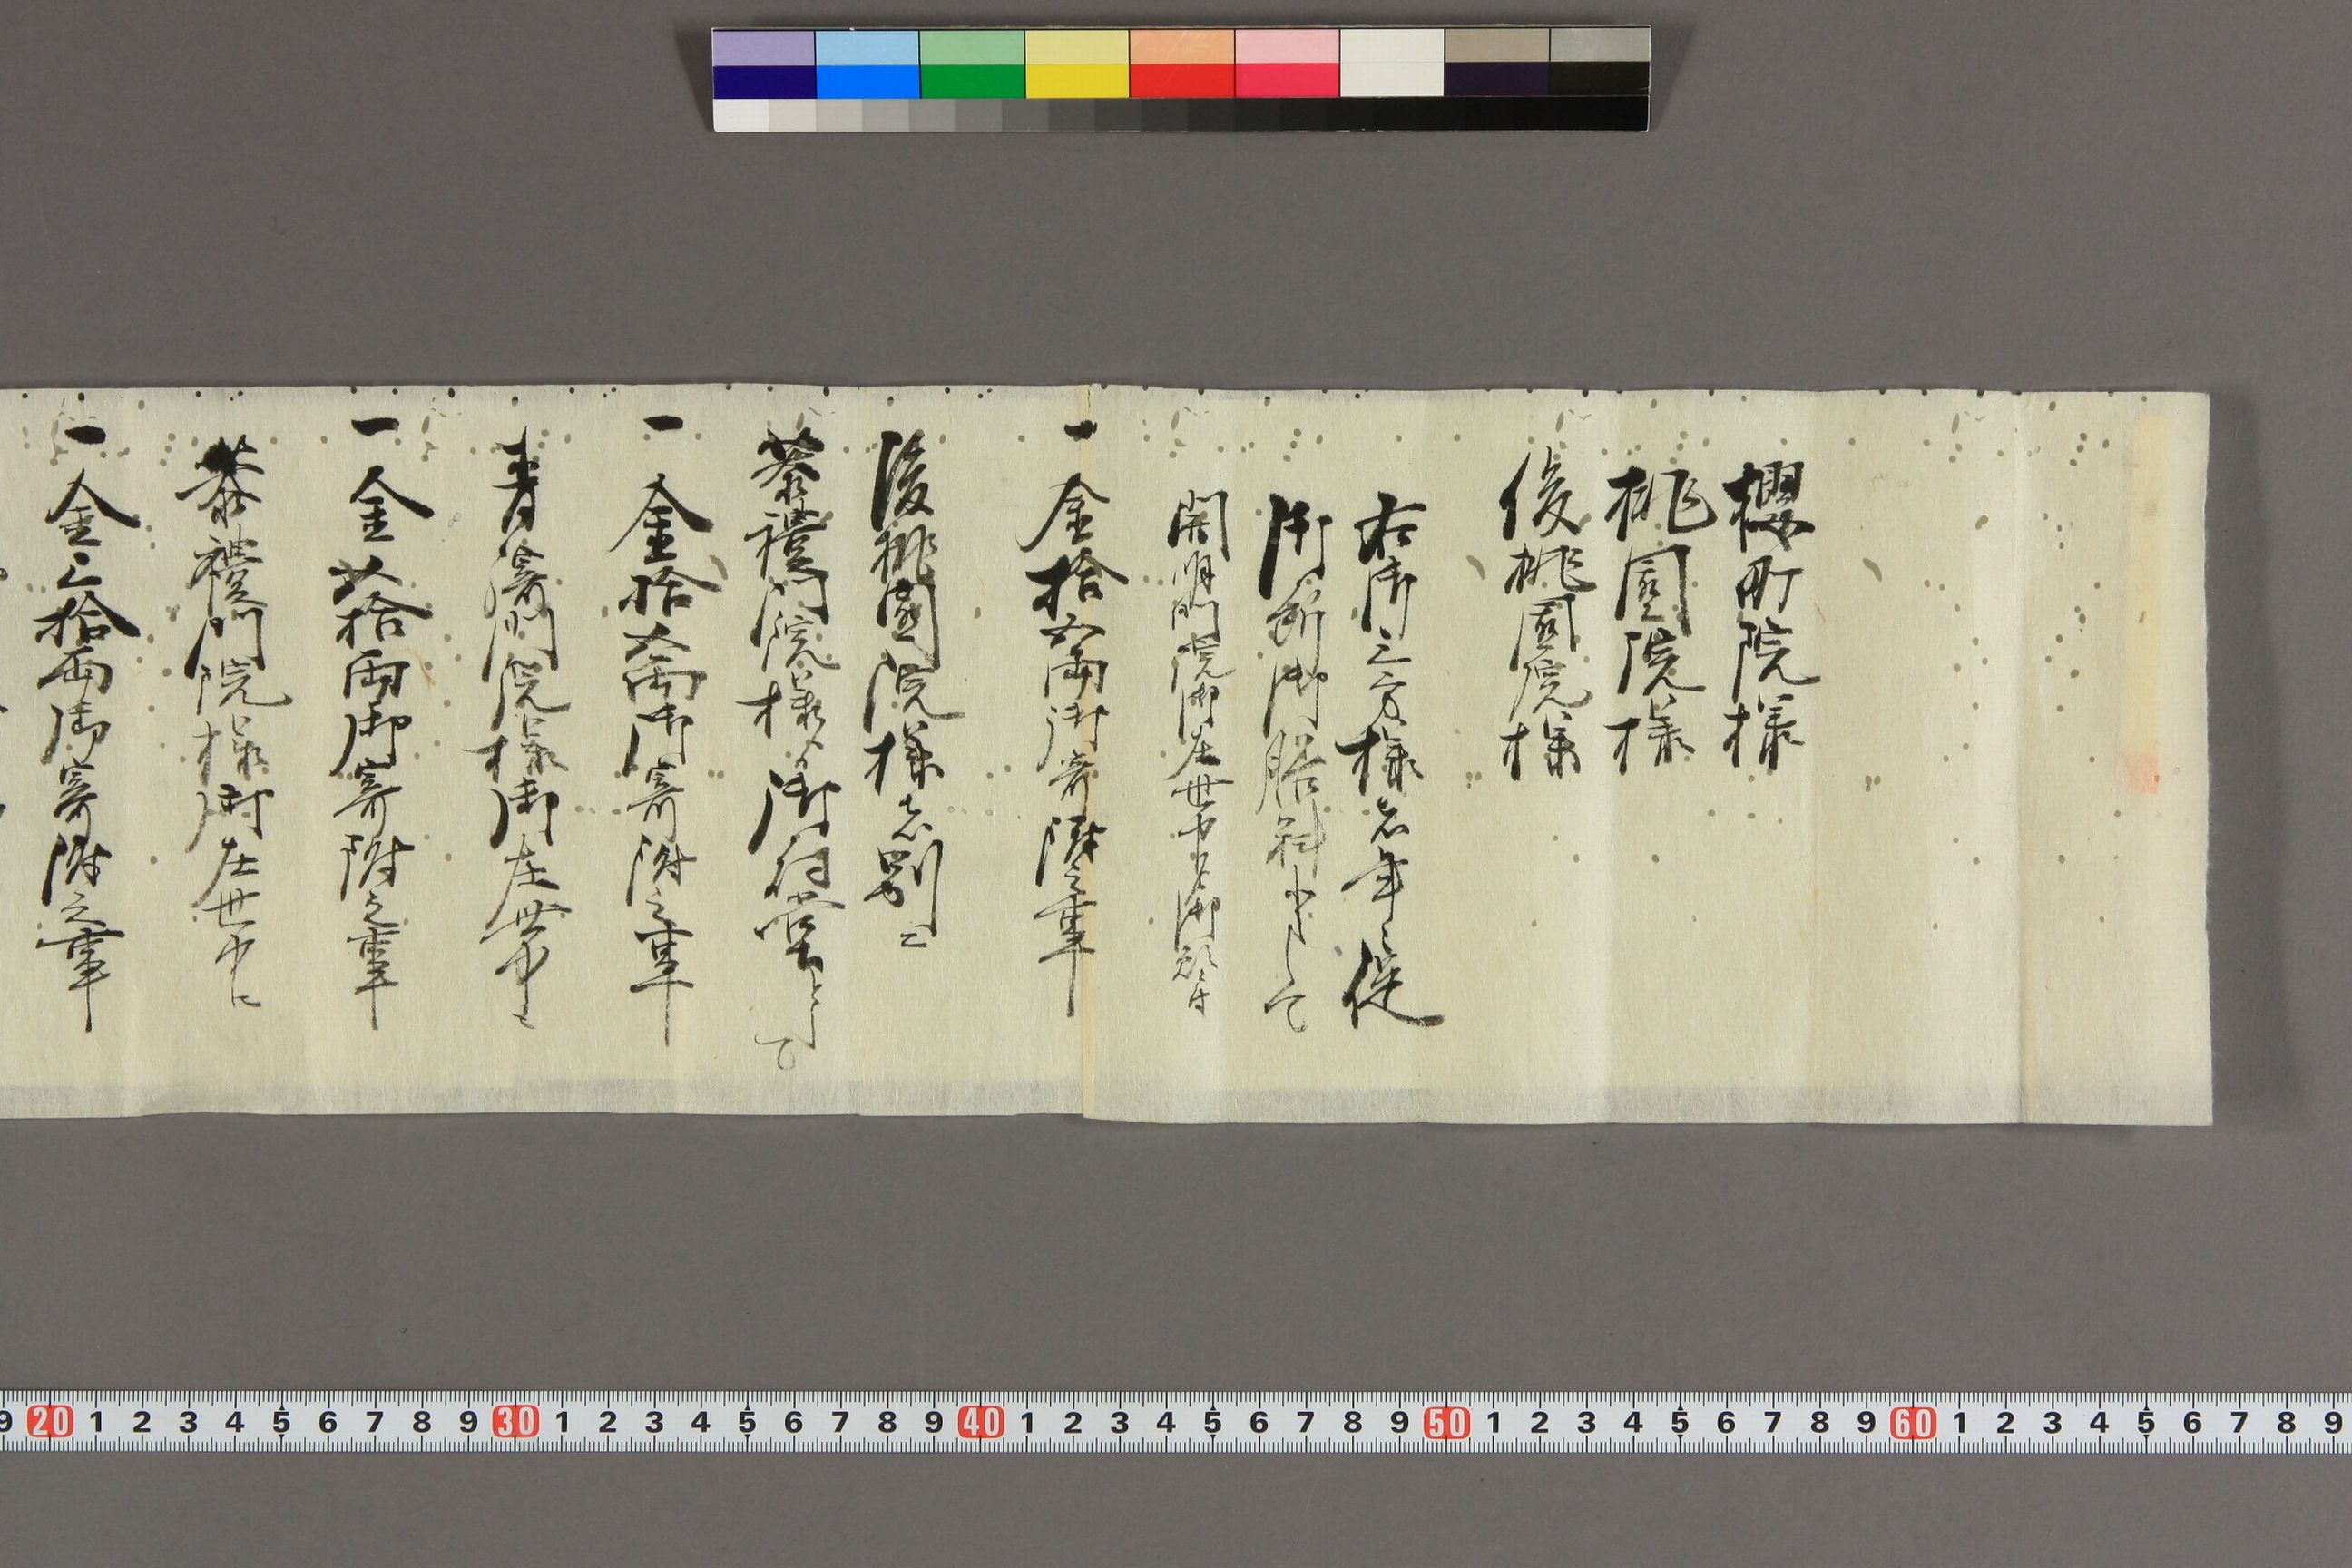 櫻町院様
桃園院様
後桃園院様
右御三方様者年々従
御所御膳料として
開明門院御在世中ゟ御就付
一金拾両御寄附之事
後桃園院様者別而
恭禮門院様ゟ御祠堂として
一金拾両御寄附之事
青綺門院様御在世中ニ
一金弐拾両御寄附之事
恭禮門院様御在世中ニ
一金三拾両御寄附之事
9 20 1 2 3 4 5 6 7 8 9 30 1 2 3 4 5 6 7 8 9 40 1 2 3 4 5 6 7 8 9 50 1 2 3 4 5 6 7 8 9 60 1 2 3 4 5 6 7 8 9